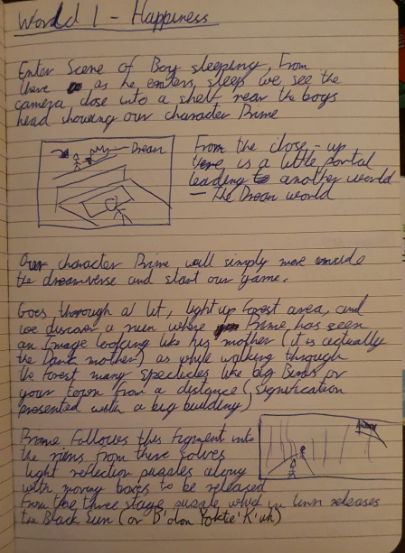 World 1 - Happiness
Enter Scene of Boy sleeping, From
there as he enters sleep we see the
camera close into a shelf near the boys
head showing our character Prime
Dream
From the close-up
there is a little portal
leading to another world
- the Dream world
Our character Prime will simply move inside
the dreamverse and start our game.
Goes thorough a lit, light up forest area, and
we discover a ruin where Prime has seen
an Image looking like his mother (it is actually
the Dark mother) as while walking through
the Forest many spectacles like big Benes or
your totem from a distance (signification
presented with a big building)
Prime follows this figment into
the ruins from there solves
light reflection puzzles along
with moving boxes to be released
from the three stage puzzle which in turn releases
the Black Sun (or